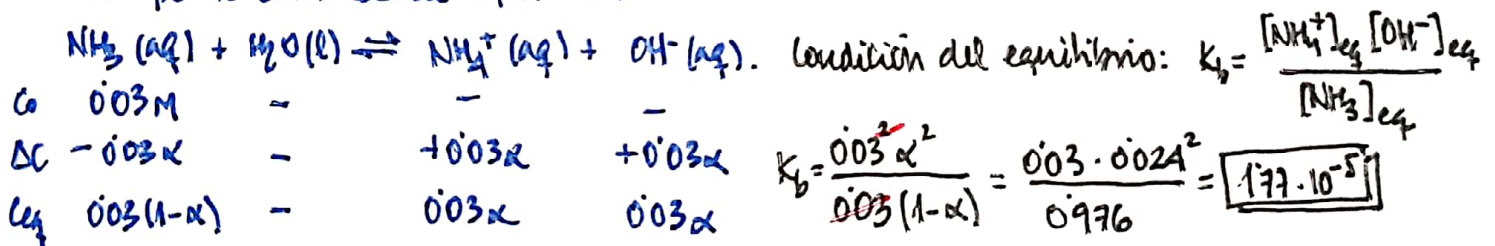 NH₃ (aq) + H₂O(l) ⇌ NH₄⁺ (aq) + OH⁻ (aq). Condición del equilibrio: K_b = [NH₄⁺]eq [OH⁻]eq / [NH₃]eq
C₀ 0'03M - - -
ΔC -0'03α - +0'03α +0'03α
Ceq 0'03(1-α) - 0'03α 0'03α
K_b = 0'03² α² / 0'03(1-α) = 0'03 · 0'024² / 0'976 = 1'77 · 10⁻⁵